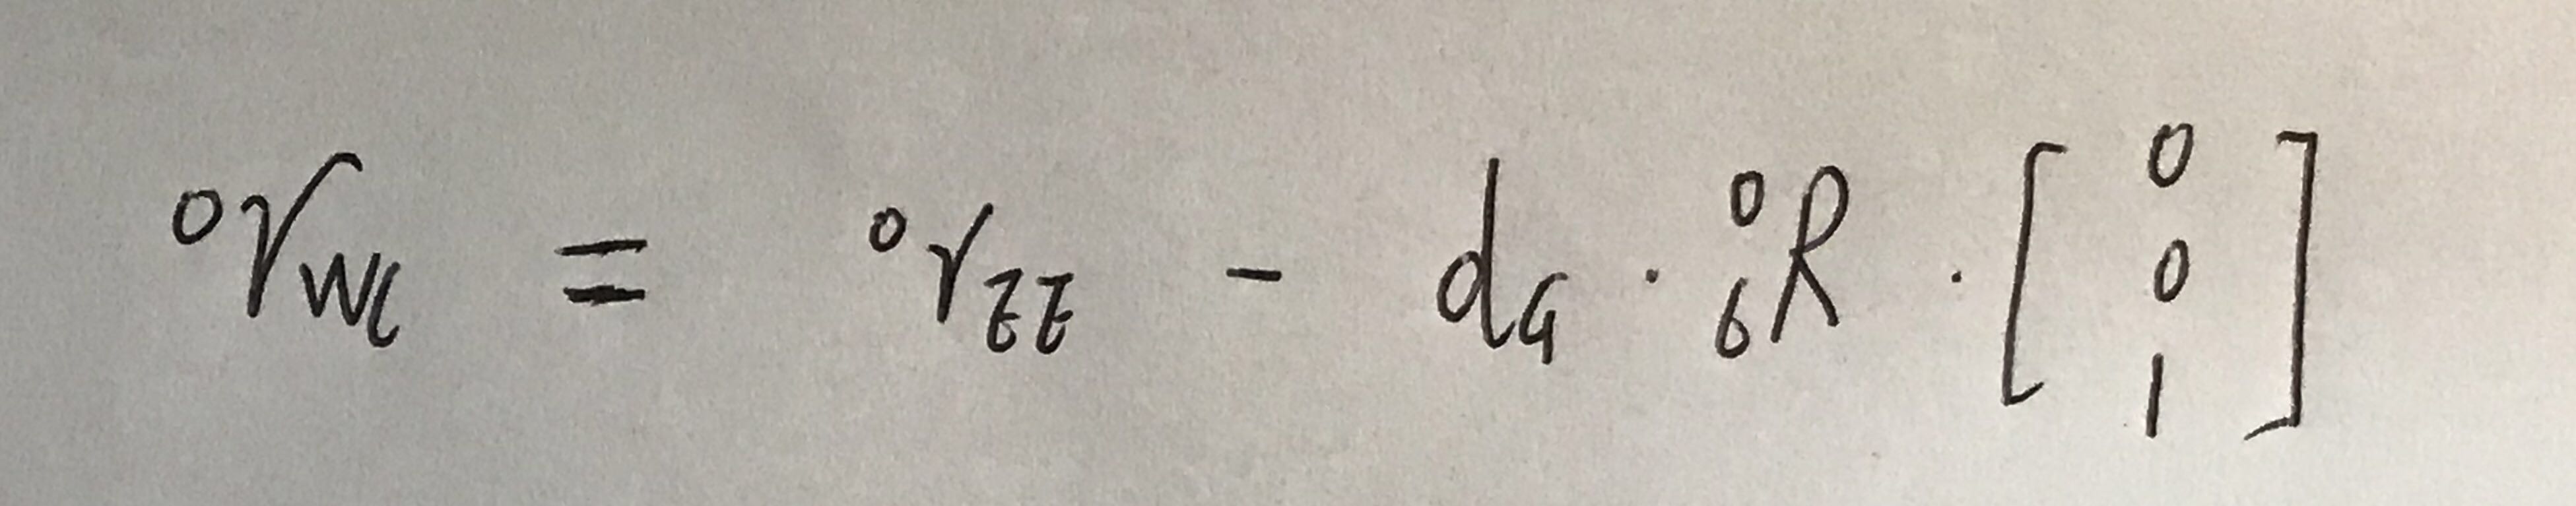 ⁰r_WC = ⁰r_EE - d_G · ⁰₆R · [0 0 1]